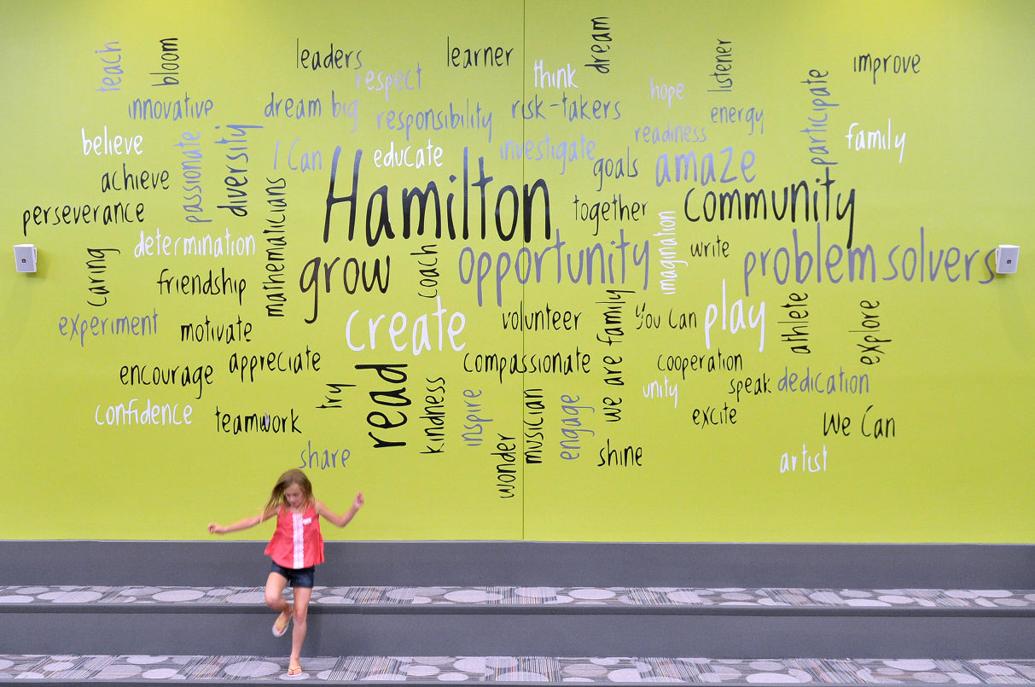 teach
bloom
leaders
respect
learner
think
dream
hope
listener
improve
innovative
dream big
responsibility
risk-takers
readiness
energy
participate
family
believe
passionate
diversity
I Can
educate
investigate
goals
amaze
achieve
mathematicians
Hamilton
together
community
perseverance
determination
caring
friendship
grow
coach
opportunity
imagination
write
problem solvers
experiment
motivate
create
volunteer
we are family
You Can
play
athlete
explore
encourage
appreciate
try
read
compassionate
cooperation
unity
speak
dedication
confidence
teamwork
kindness
inspire
musician
engage
excite
We Can
share
wonder
shine
artist